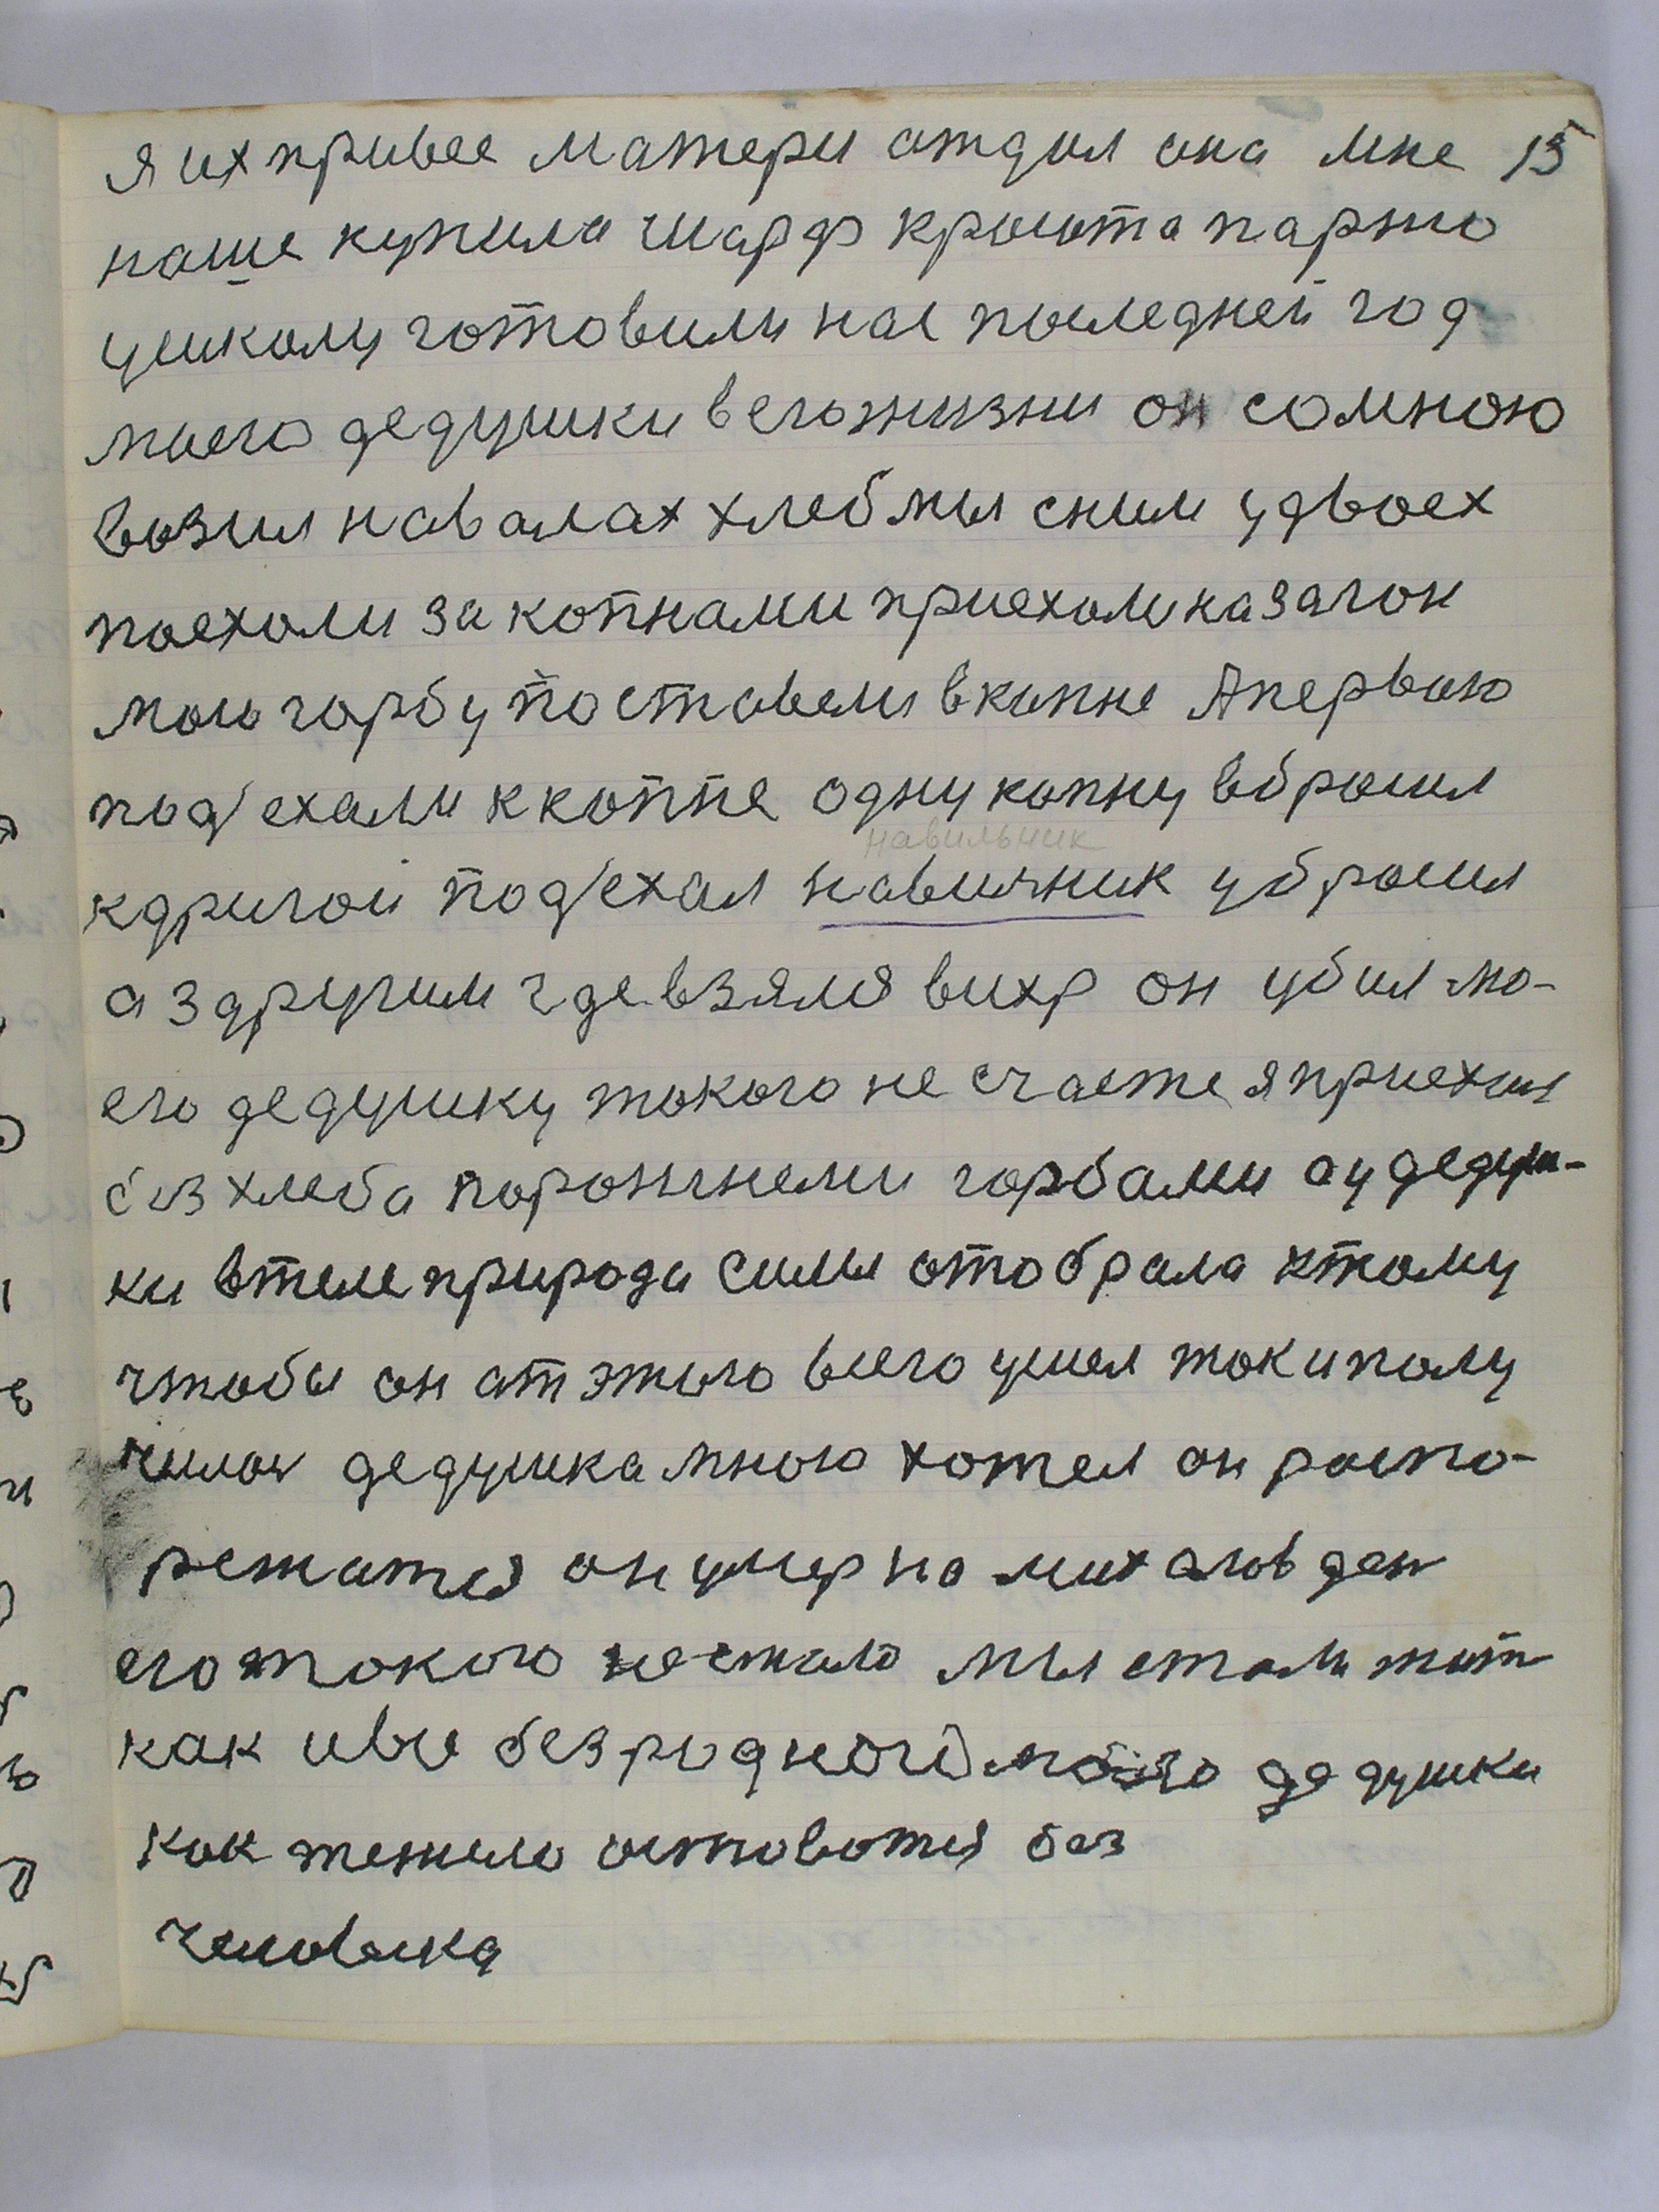 я их привее матери отдал она мне 15
наше купила шарф красота парню
ушколу готовили нас последней год
моего дедушки вегожизни он сомною
возил навалах хлеб мы сним удвоех
поехали за копнами приехали назагон
мою гарбу поставели вкипне А первою
под'ехали ккопне одну копну вбросил
навильник
кдригой под'ехал навичник убросил
а здругим где взялся вихр он убил мо-
его дедушку токого не счасте я приехал
без хлеба порожнеми гарбами а у дедуш-
ки втеле природа силы отобрала ктому
чтобы он от этого всего ушел так и полу
чилос дедушка много хотел он распо-
режатся он умер на михалов ден
его токого не стало мы стали жит
как и все без родного моего дедушки
как тежело оставотся без
человека